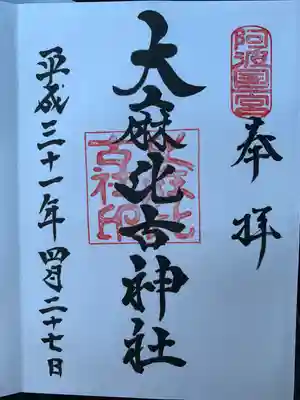 阿波国一宮
奉拝
大麻比古神社
大麻比古社印
平成三十一年四月二十七日